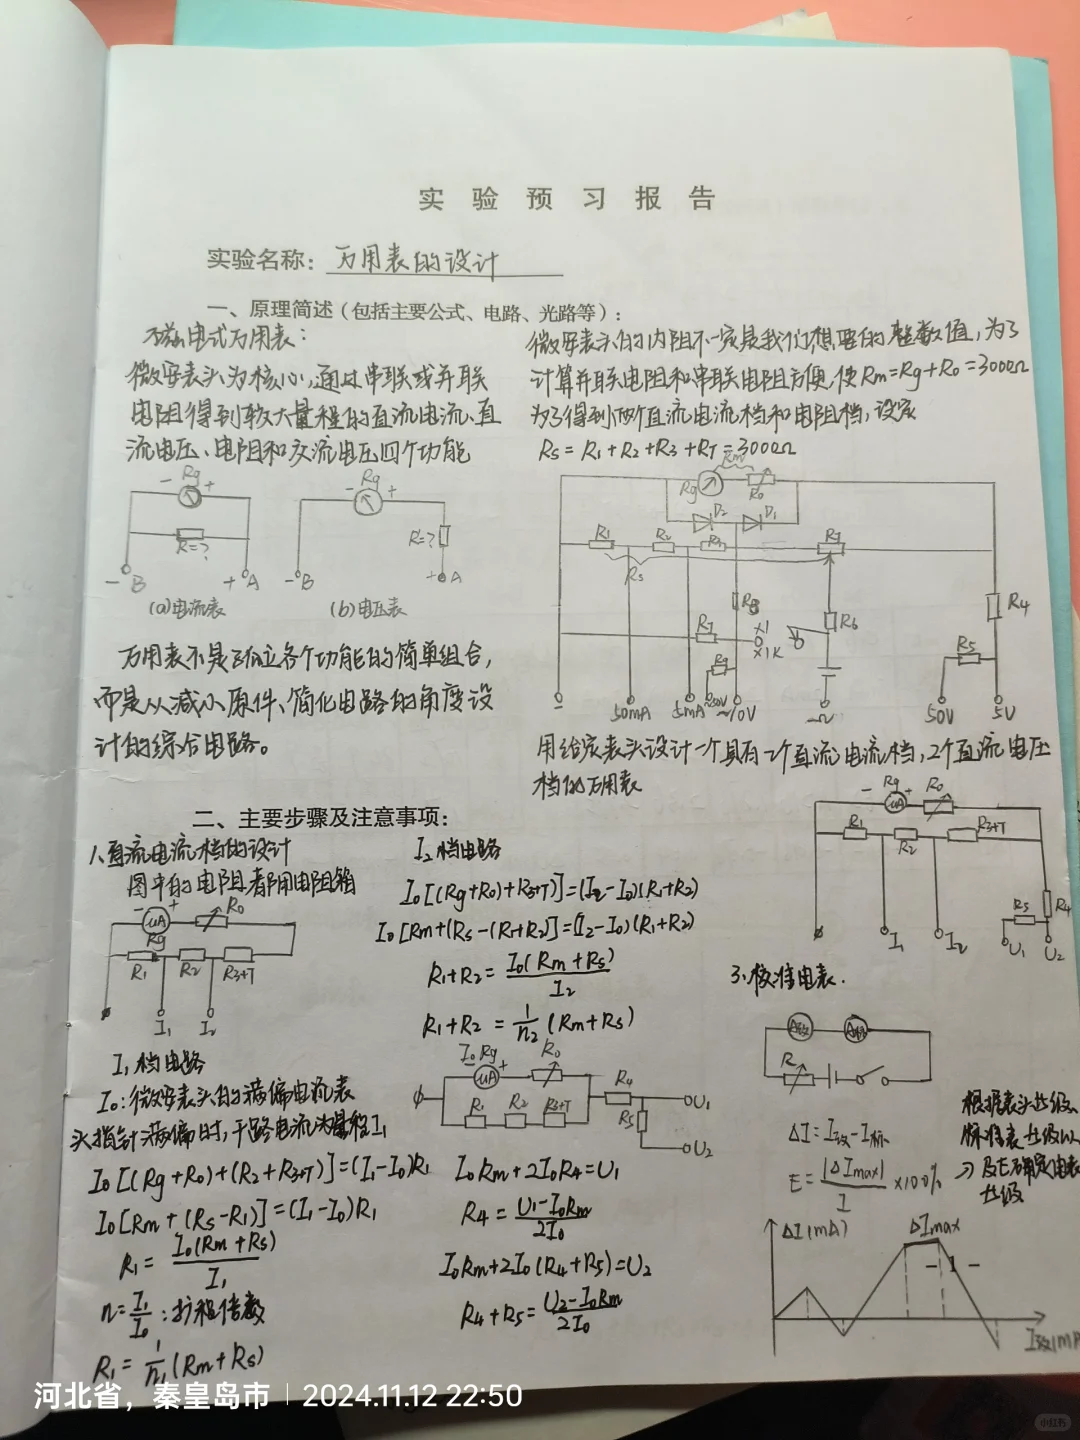 实验预习报告
实验名称：万用表的设计
一、原理简述（包括主要公式、电路、光路等）：
磁电式万用表：
微安表头为核心，通过串联或并联
电阻得到较大量程的直流电流、直
流电压、电阻和交流电压四个功能
- Rg +
R=?
- B
+ A
(a)电流表
Rg
- +
R=?
- B
+ A
(b)电压表
万用表不是孤立各个功能的简单组合，
而是从减小原件、简化电路的角度设
计的综合电路。
微安表头的内阻不一定是我们想要的整数值，为了
计算并联电阻和串联电阻方便，使Rm=Rg+R0=3000Ω
为了得到两个直流电流档和电阻档，设定
Rs=R1+R2+R3+RT=3000Ω
Rm
Rg
R0
D2
D1
R1
R2
R3
RT
Rs
R8
R7
X1
X1K
R6
R4
R5
R9
-
50mA
5mA
~50V
~10V
Ω
50V
5V
用给定表头设计一个具有2个直流电流档，2个直流电压
档的万用表
二、主要步骤及注意事项：
1、直流电流档的设计
图中的电阻都用电阻箱
- μA +
R0
Rg
R1
R2
R3+T
I1
I2
I1档电路
I0：微安表头的满偏电流表
头指针满偏时，干路电流为量程I1
I0[(Rg+R0)+(R2+R3+T)]=(I1-I0)R1
I0[Rm+(Rs-R1)]=(I1-I0)R1
R1=I0(Rm+Rs)/I1
n=I1/I0：扩程倍数
R1=1/n1(Rm+Rs)
I2档电路
I0[(Rg+R0)+R3+T)]=(I2-I0)(R1+R2)
I0[Rm+(Rs-(R1+R2)]=(I2-I0)(R1+R2)
R1+R2=I0(Rm+Rs)/I2
R1+R2=1/n2(Rm+Rs)
I0 Rg
- μA +
R0
R1
R2
R3+T
R4
R5
U1
U2
I0Rm+2I0R4=U1
R4=U1-I0Rm/2I0
I0Rm+2I0(R4+R5)=U2
R4+R5=U2-I0Rm/2I0
- Rg +
μA
R0
R1
R2
R3+T
R5
R4
I1
I2
U1
U2
3、校准电表.
A改
A标
R
ΔI=I改-I标
E=|ΔImax|/I×100%
根据表头等级、
标准表等级以
及E确定电表
等级
ΔI(mA)
ΔImax
I改(mA
河北省，秦皇岛市 | 2024.11.12 22:50
小红书